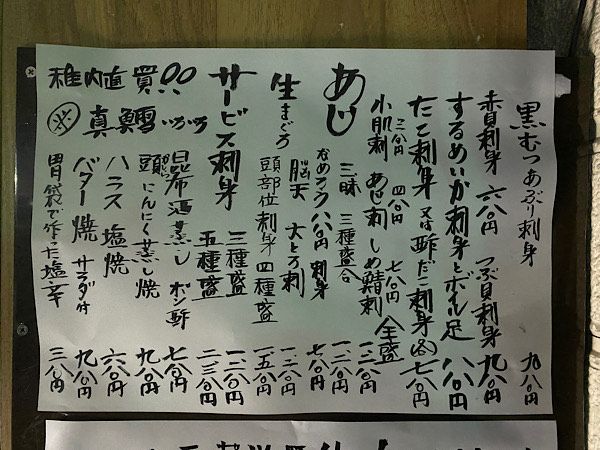 黒むつあぶり刺身 九八〇円
赤貝刺身 六八〇円 つぶ貝刺身 九八〇円
するめいか刺身とボイル足 八八〇円
たこ刺身 又は酢だこ刺身 七八〇円
三八〇円 四八〇円 七八〇円
小肌刺 あじ刺 しめ鯖刺 全盛 一三八〇円
あじ 三昧 三種盛合 一二八〇円
なめろう八八〇円 刺身 七八〇円
生まぐろ 脳天 大とろ刺 一二八〇円
頭部位刺身四種盛 一五八〇円
サービス刺身 三種盛 一三八〇円
五種盛 二三八〇円
稚内直買
真鱈
昆布酒蒸し ポン酢 七八〇円
頭にんにく蒸し焼 九八〇円
ハラス塩焼 六八〇円
バター焼 サラダ付 九八〇円
胃袋で作った塩辛 三八〇円